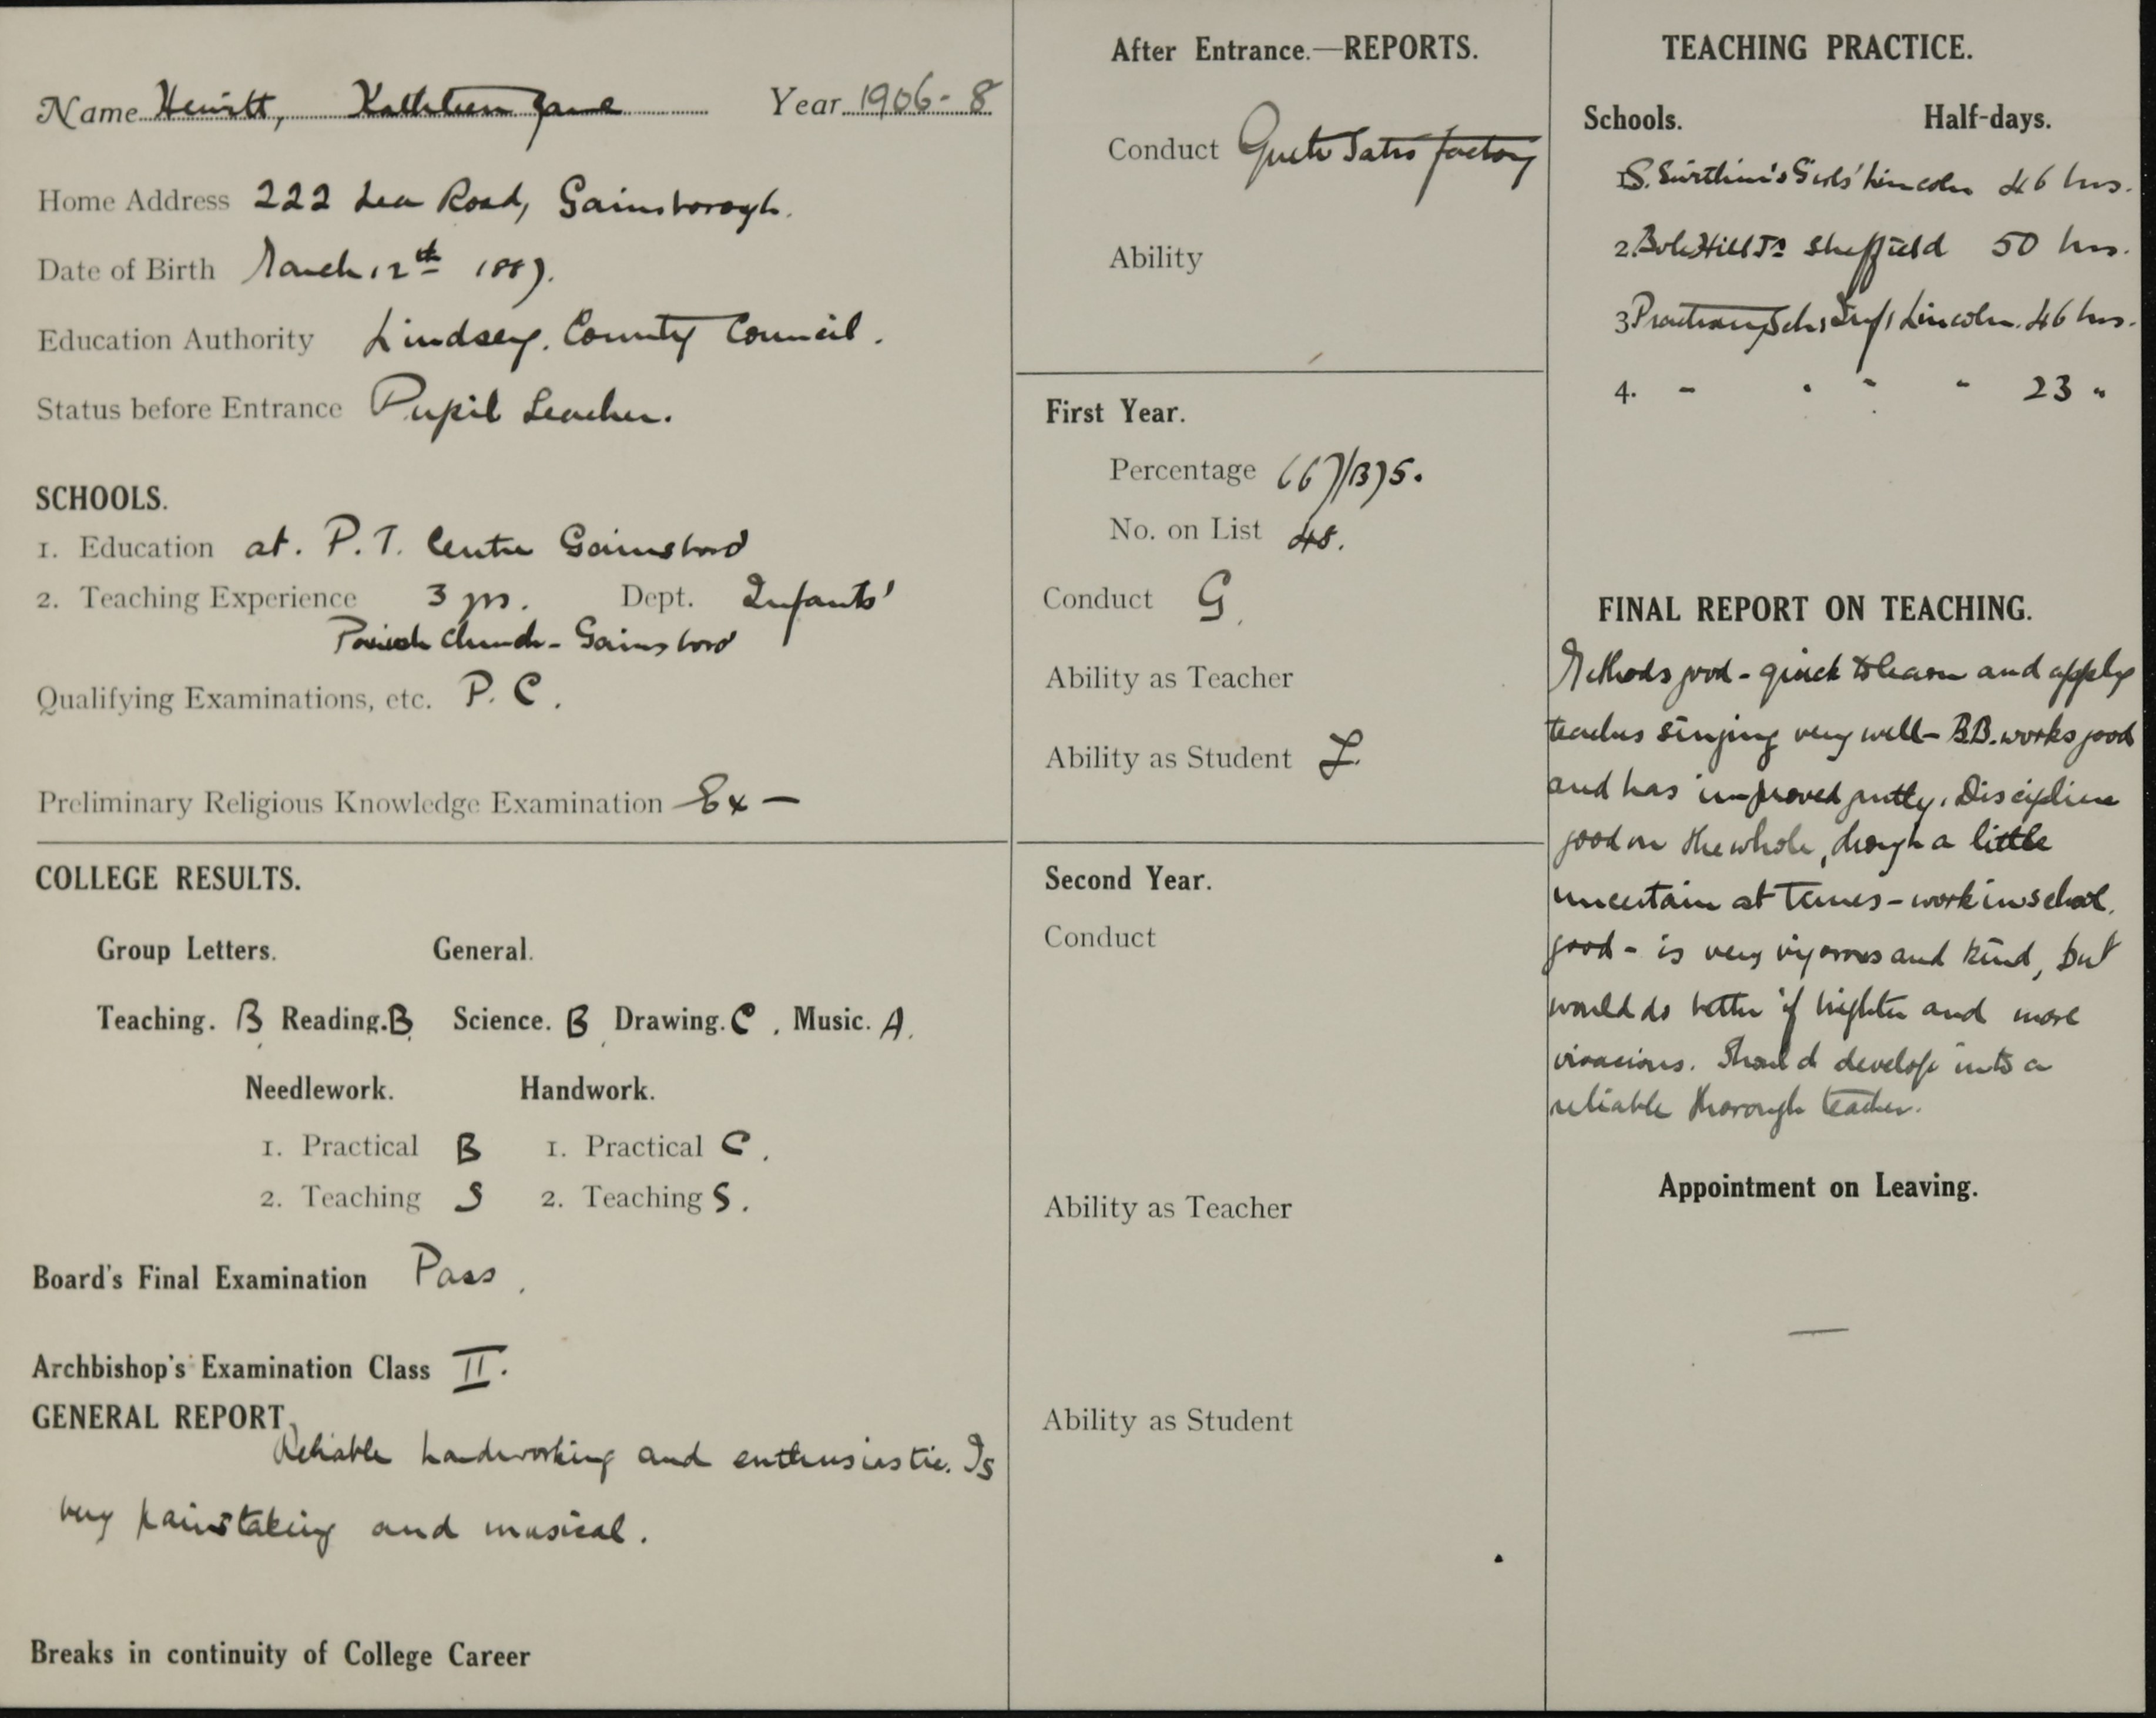 Name Hewitt, Kathleen Jane Year 1906-8
Home Address 222 Lea Road, Gainsborough.
Date of Birth March 12th 1887.
Education Authority Lindsey. County Council.
Status before Entrance Pupil Teacher.
SCHOOLS.
1. Education at. P. T. Centre Gainsboro'
2. Teaching Experience 3 yrs. Dept. Infants'
Parish Church - Gainsboro'
Qualifying Examinations, etc. P. C.
Preliminary Religious Knowledge Examination Ex -
COLLEGE RESULTS.
Group Letters. General.
Teaching. B Reading. B Science. B Drawing. C. Music. A.
Needlework. Handwork.
1. Practical B 1. Practical C.
2. Teaching S 2. Teaching S.
Board's Final Examination Pass.
Archbishop's Examination Class II.
GENERAL REPORT.
Reliable hardworking and enthusiastic. Is
very painstaking and musical.
Breaks in continuity of College Career
After Entrance.—REPORTS.
Conduct Quite Satisfactory
Ability
First Year.
Percentage
No. on List 48.
Conduct G.
Ability as Teacher
Ability as Student
Second Year.
Conduct
Ability as Teacher
Ability as Student
TEACHING PRACTICE.
Schools. Half-days.
1 S. Swithin's Girls' Lincoln 46 hrs.
2. Bole Hill Sheffield 50 hrs.
3 Practising Sch. Inf. Lincoln. 46 hrs.
4. - " " " 23 "
FINAL REPORT ON TEACHING.
Methods good - quick to learn and apply
teaches singing very well - B.B. works good
and has improved greatly. Discipline
good on the whole, though a little
uncertain at times - work in school.
good - is very vigorous and kind, but
would do better if brighter and more
vivacious. Should develop into a
reliable thorough teacher.
Appointment on Leaving.
—